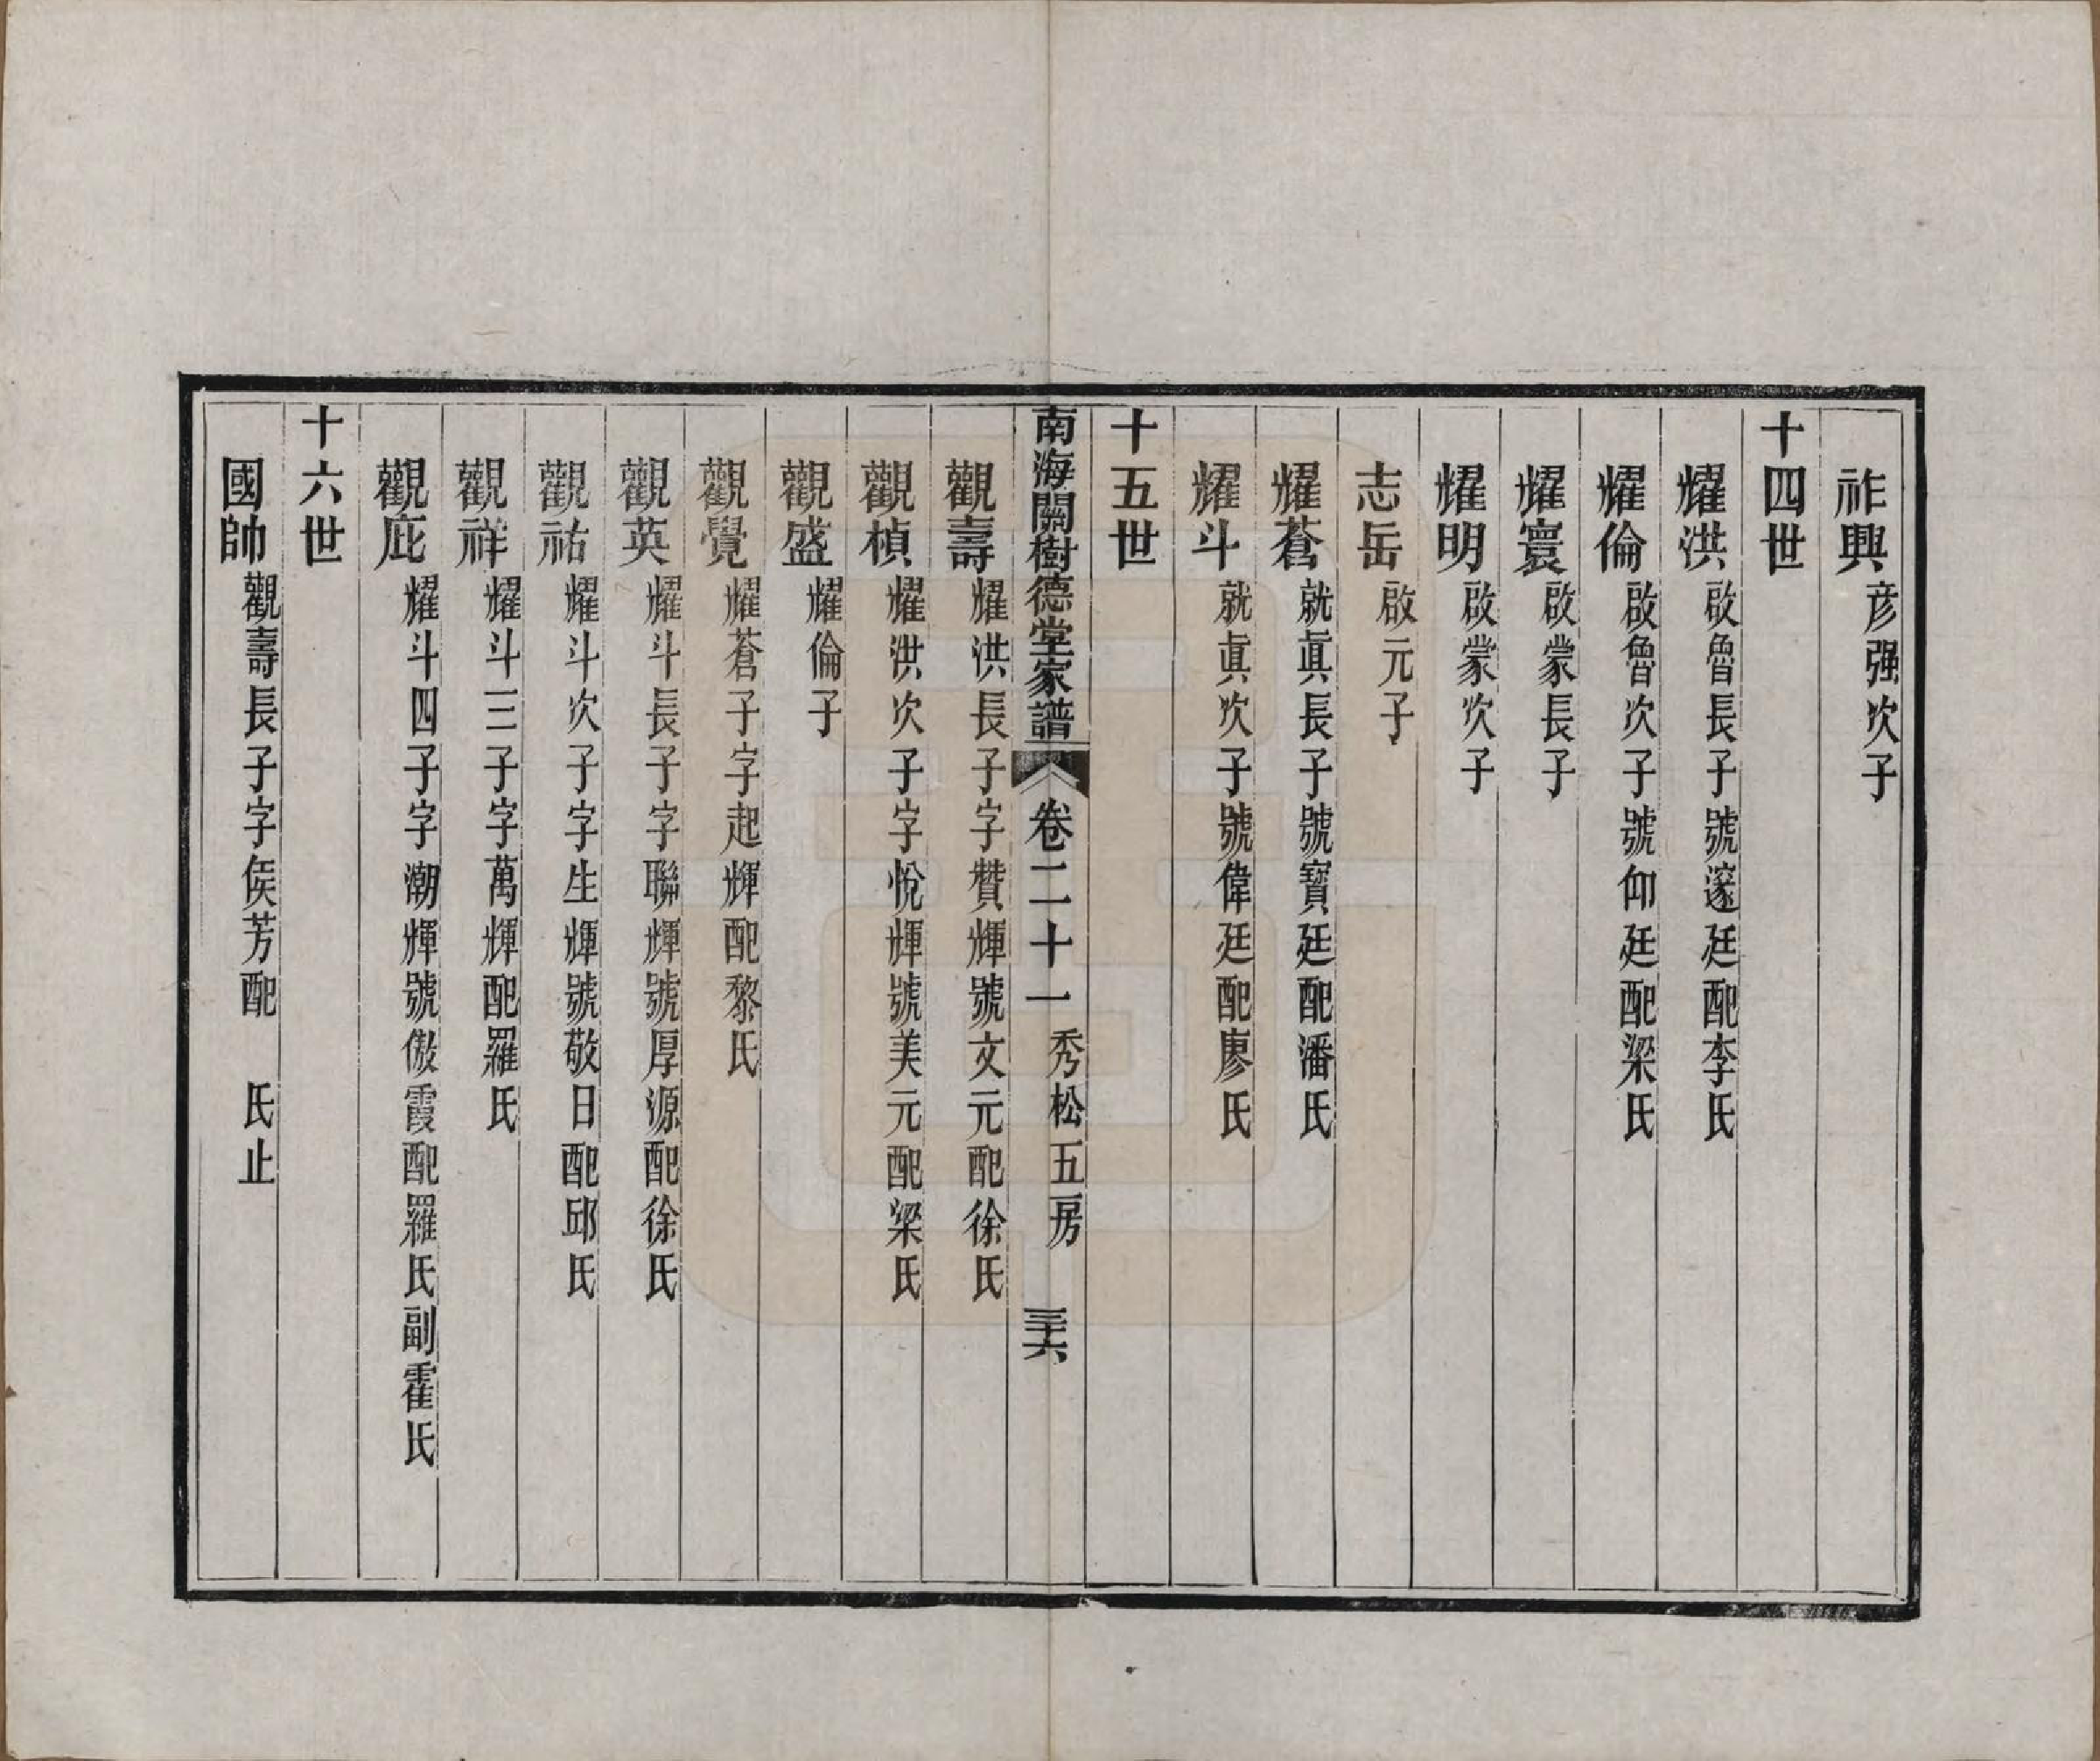 祚興彦强次子
十四世
耀洪啟魯長子號邃廷配李氏
耀倫啟魯次子號仰廷配梁氏
耀寰啟蒙長子
耀明啟蒙次子
志岳啟元子
耀蒼就眞長子號寶廷配潘氏
耀斗就眞次子號偉廷配廖氏
十五世
南海關樹德堂家譜 卷二十一 秀松五房 三十六
觀壽耀洪長子字贊輝號文元配徐氏
觀楨耀洪次子字悅輝號美元配梁氏
觀盛耀倫子
觀覺耀蒼子字起輝配黎氏
觀英耀斗長子字聯輝號厚源配徐氏
觀祐耀斗次子字生輝號敬日配邱氏
觀祥耀斗三子字萬輝配羅氏
觀庇耀斗四子字潮輝號傲霞配羅氏副霍氏
十六世
國帥觀壽長子字矦芳配 氏止